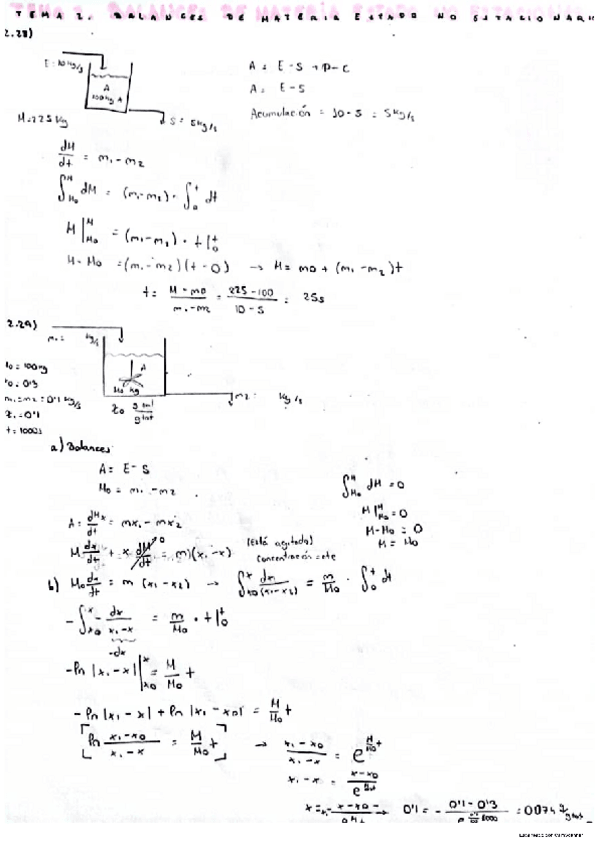 TEMA 2. BALANCES DE MATERIA ESTADO NO ESTACIONARIO
2.28)
E = 10 kg/s
A
100 kg A
S = 5 kg/s
M = 225 kg
A = E - S + P - C
A = E - S
Acumulación = 10 - 5 = 5 kg/s
dM/dt = m1 - m2
∫_{M0}^{M} dM = (m1 - m2) · ∫_0^t dt
M|_{M0}^{M} = (m1 - m2) · t|_0^t
M - M0 = (m1 - m2)(t - 0) → M = m0 + (m1 - m2)t
t = (M - m0)/(m1 - m2) = (225 - 100)/(10 - 5) = 25s
2.29)
m1 = kg/s
A
M0 kg
m2 = kg/s
x0 g sal/g tot
= 100 kg
= 0'3
m1 = m2 = 0'1 kg/s
= 0'1
t =
a) Balances
A = E - S
M0 = m1 - m2
A = dMx/dt = mx1 - mx2
M dx/dt + x dM/dt 0 = m)(x1 - x)
(Está agitado)
Concentración = cte
∫_{M0}^{M} dM = 0
M|_{M0}^{M} = 0
M - M0 = 0
M = M0
b) M0 dx/dt = m (x1 - x2) → ∫_{x0}^{x} dx/(x1 - x2) = m/M0 · ∫_0^t dt
- ∫_{x0}^{x} - dx/(x1 - x) = m/M0 · t|_0^t
-dx
-ln |x1 - x||_{x0}^{x} = M/M0 t
-ln |x1 - x| + ln |x1 - x0| = M/M0 t
[ln (x1 - x0)/(x1 - x) = M/M0 t] → (x1 - x0)/(x1 - x) = e^{M/M0 t}
x1 - x = (x - x0)/e
0'1 = - (0'1 - 0'3)/e = 0'074